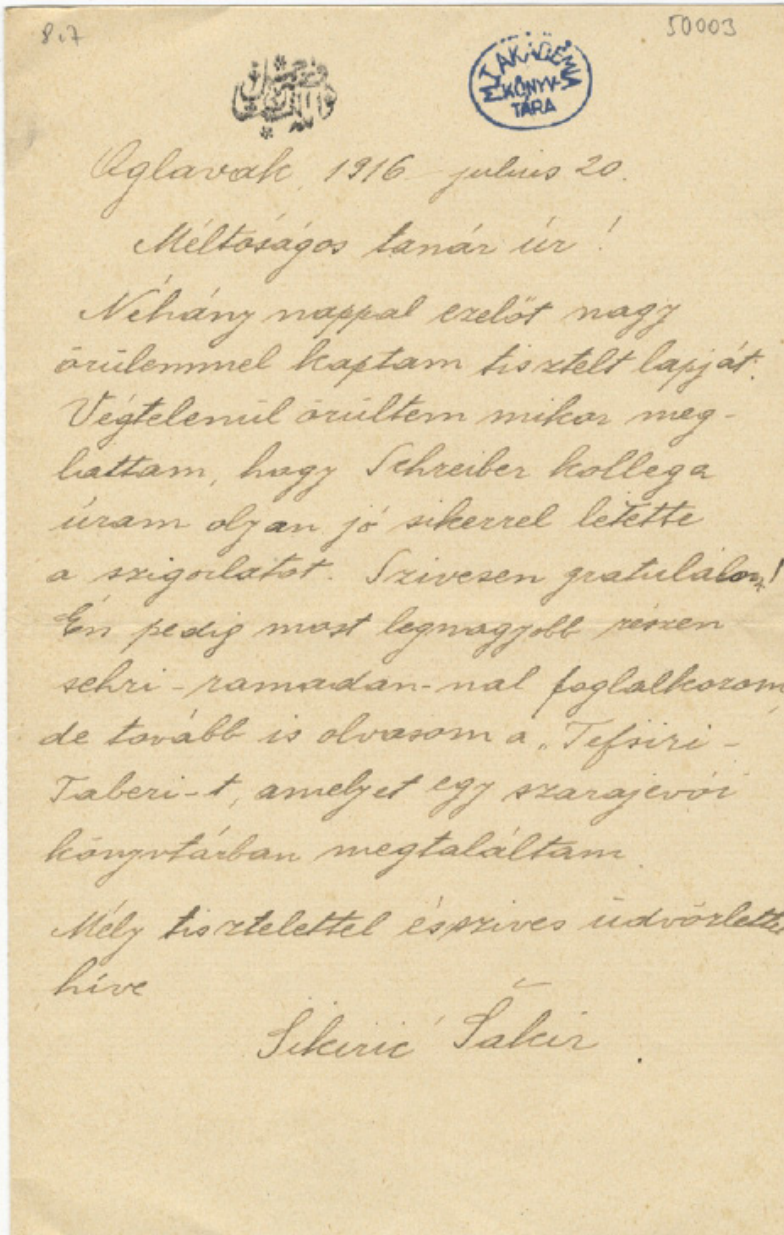 8.7
50003
M.T. AKADÉMIA
KÖNYV-
TÁRA
Oglavak, 1916 julius 20.
Méltóságos tanár úr!
Néhány nappal ezelőt nagy
örülemmel kaptam tisztelt lapját.
Végtelenül örültem mikor meg-
láttam, hogy Schreiber kollega
úram olyan jó sikerrel letette
a szigorlatot. Szivesen gratulálom!
Én pedig most legnagyobb részen
sehri-ramadan-nal foglalkozom,
de tovább is olvasom a „Tefsiri-
Taberi-t, amelyet egy szarajevói
könyvtárban megtaláltam.
Mély tisztelettel és szives üdvözlettel
híve
Sikirić Šakir.